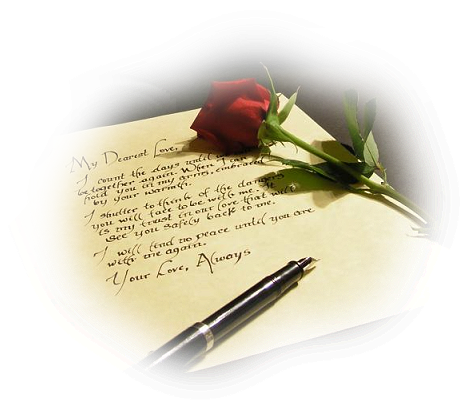 My Dearest Love,
I count the days until I can
be together again. When
hold you in my arms, embraced
by your warmth.
I shutter to think of the dangers
you will face to be with me. It
is my trust in our love that will
see you safely back to me.
I will find no peace until you are
with me again.
Your Love, Always